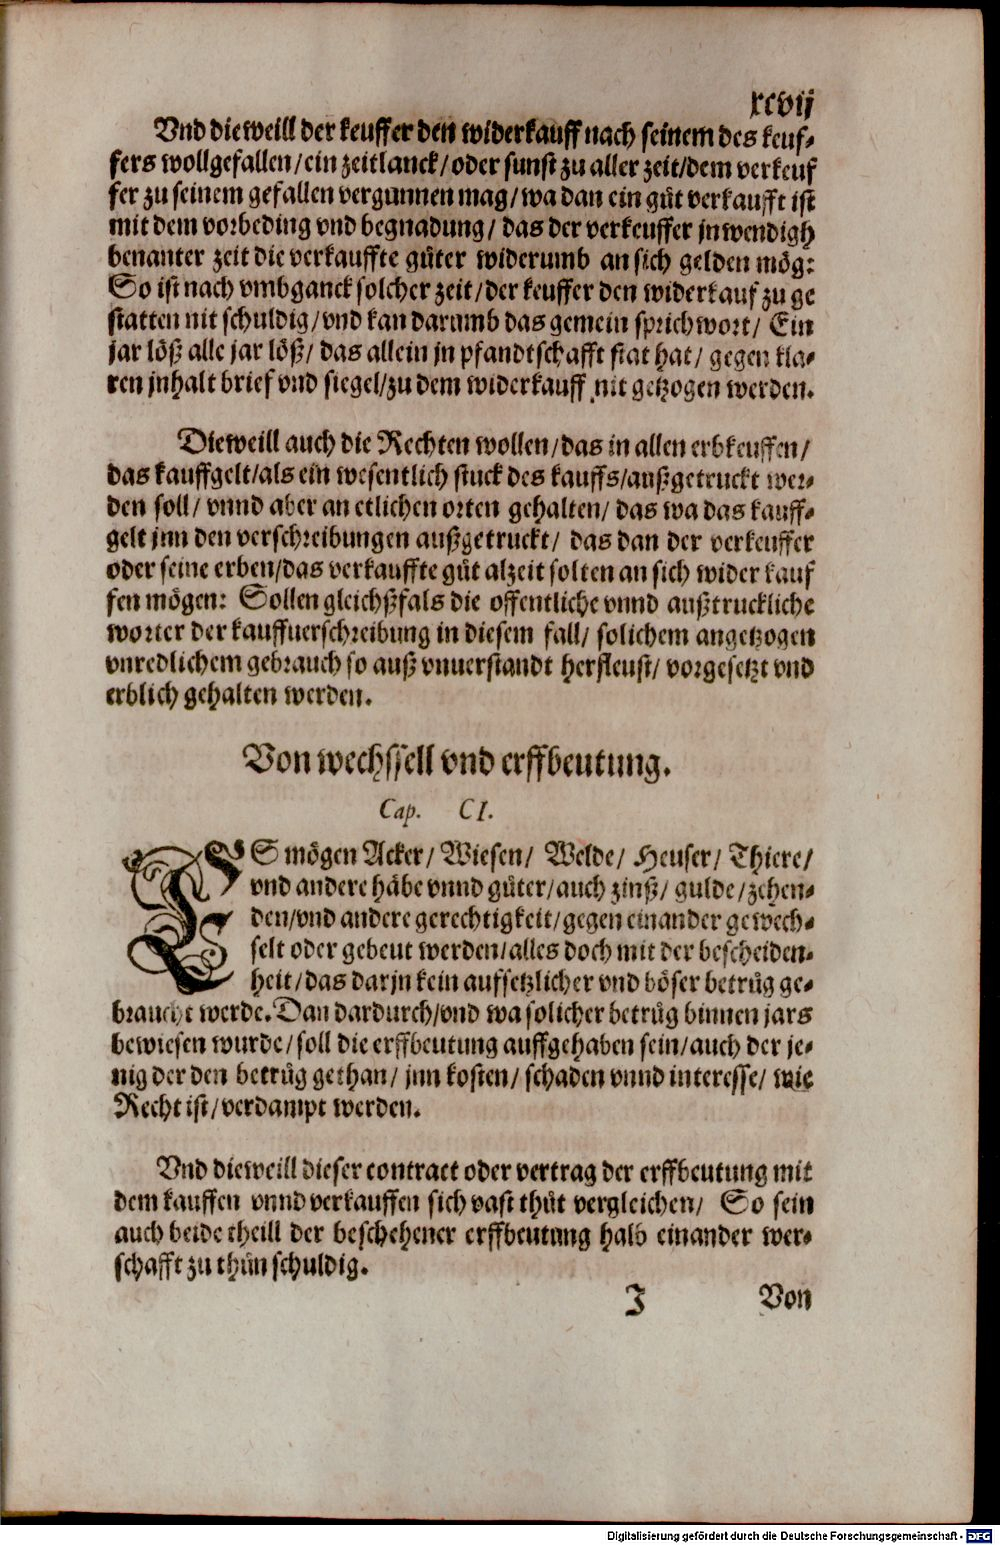 xcvij
Vnd dieweill der keuffer den widerkauff nach seinem des keuf-
fers wollgefallen/ein zeitlanck/oder sunst zu aller zeit/dem verkeuf
fer zu seinem gefallen vergunnen mag/wa dan ein gůt verkaufft ist
mit dem vorbeding vnd begnadung/ das der verkeuffer jnwendigh
benanter zeit die verkauffte gůter widerumb an sich gelden mög:
So ist nach vmbganck solcher zeit/der keuffer den widerkauf zu ge
statten nit schuldig/vnd kan darumb das gemein sprichwort/ Ein
jar löß alle jar löß/ das allein jn pfandtschafft stat hat/ gegen kla-
ren jnhalt brief vnd siegel/zu dem widerkauff nit getzogen werden.
Dieweill auch die Rechten wollen/das in allen erbkeuffen/
das kauffgelt/als ein wesentlich stuck des kauffs/außgetruckt wer-
den soll/ vnnd aber an etlichen orten gehalten/ das wa das kauff-
gelt jnn den verschreibungen außgetruckt/ das dan der verkeuffer
oder seine erben/das verkauffte gůt alzeit solten an sich wider kauf
fen mögen: Sollen gleichßfals die offentliche vnnd außtruckliche
worter der kauffuerschreibung in diesem fall/ solichem angetzogen
vnredlichem gebrauch so auß vnuerstandt herfleust/ vorgesetzt vnd
erblich gehalten werden.
Von wechssell vnd erffbeutung.
Cap. CI.
ES mögen Acker/ Wiesen/ Welde/ Heuser/ Thiere/
vnd andere häbe vnnd gůter/auch zinß/ gulde/zehen-
den/vnd andere gerechtigkeit/gegen einander gewech-
selt oder gebeut werden/alles doch mit der bescheiden-
heit/das darjn kein aufsetzlicher vnd böser betrůg ge-
braucht werde. Dan dardurch/vnd wa solicher betrůg binnen jars
bewiesen wurde/soll die erffbeutung auffgehaben sein/auch der je-
nig der den betrůg gethan/ jnn kosten/ schaden vnnd interesse/ wie
Recht ist/verdampt werden.
Vnd dieweill dieser contract oder vertrag der erffbeutung mit
dem kauffen vnnd verkauffen sich vast thůt vergleichen/ So sein
auch beide theill der beschehener erffbeutung halb einander wer-
schafft zu thůn schuldig.
J Von
Digitalisierung gefördert durch die Deutsche Forschungsgemeinschaft - DFG